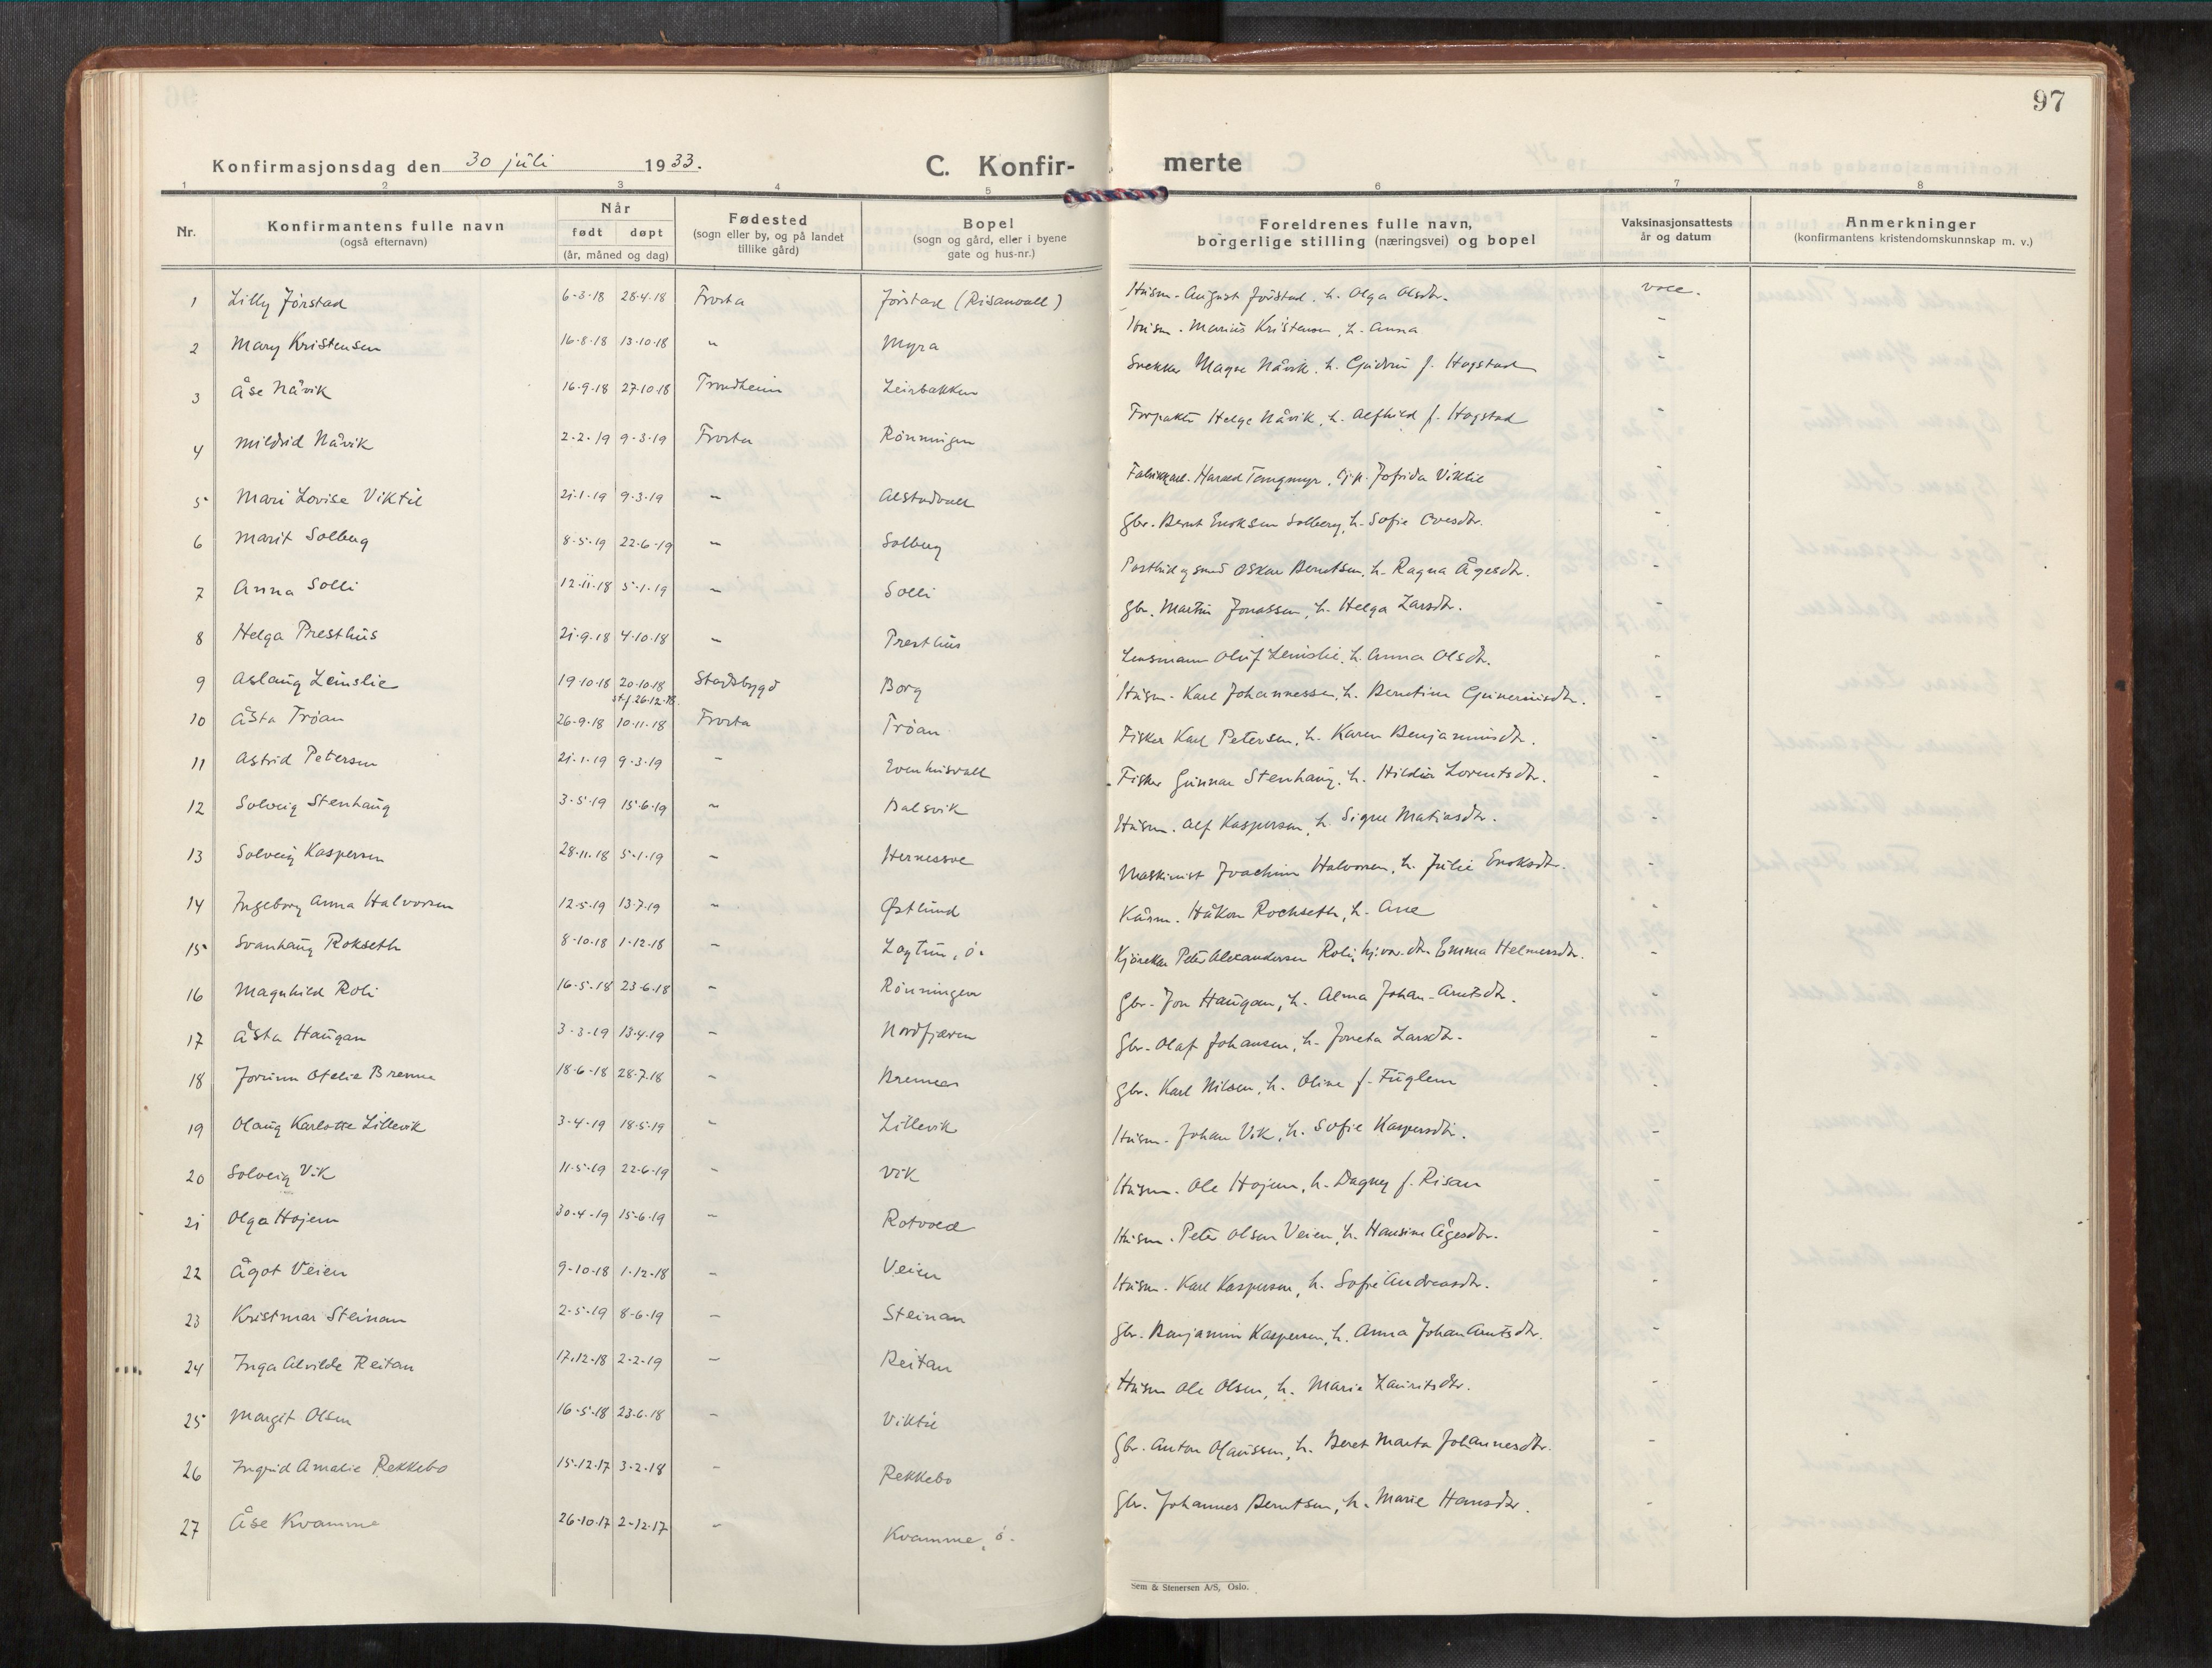 97
Konfirmasjonsdag den 30 juli 1933.
C. Konfir- merte
1 2 3 4 5 6 7 8
Nr. Konfirmantens fulle navn (også efternavn) Når født døpt (år, måned og dag) Fødested (sogn eller by, og på landet tillike gård) Bopel (sogn og gård, eller i byene gate og hus-nr.) Foreldrenes fulle navn, borgerlige stilling (næringsvei) og bopel Vaksinasjonsattests år og datum Anmerkninger (konfirmantens kristendomskunnskap m. v.)
1 Lilly Jörstad 6-3-18 28-4-18 Frosta Jörstad (Risanvall) Husm. August Jörstad, h. Olga Olsdtr. vacc.
2 Mary Kristensen 16-8-18 13-10-18 " Myra Husm. Marius Kristensen, h. Anna -
3 Åse Nåvik 16-9-18 27-10-18 Trondheim Leirbakken Snekker Magne Nåvik, h. Gudrun f. Hogstad -
4 Mildrid Nåvik 2-2-19 9-3-19 Frosta Rönningen Forpakter Helge Nåvik, h. Alfhild f. Hogstad -
5 Mari Lovise Viktil 21-1-19 9-3-19 - Alstadvall Harald Jofrida Viktil -
6 Marit Solberg 8-5-19 22-6-19 - Solberg Gbr. Bernt Enoksen Solberg, h. Sofie Ovesdtr. -
7 Anna Solli 12-11-18 5-1-19 - Solli Postbud og smed Oskar Berntsen, h. Ragna Ågesdtr. -
8 Helga Presthus 21-9-18 4-10-18 - Presthus Gbr. Martin Jonassen, h. Helga Larsdtr. -
9 Aslaug Leinslie 19-10-18 20-10-18 st.f. 26-12-18. Stadsbygd Borg Lensmann Oluf Leinslie, h. Anna Olsdtr. -
10 Åsta Tröan 26-9-18 10-11-18 Frosta Tröan Husm. Karl Johannessen, h. Berntine -
11 Astrid Petersen 21-1-19 9-3-19 - Evenhusvall Fisker Karl Petersen, h. Karen Benjaminsdtr. -
12 Solveig Stenhaug 3-5-19 15-6-19 - Balsvik Fisker Gunnar Stenhaug, h. Hildur Lorentsdtr. -
13 Solveig Kaspersen 28-11-18 5-1-19 - Hernessve Husm. Alf Kaspersen, h. Signe Matiasdtr. -
14 Ingeborg Anna Halvorsen 12-5-19 13-7-19 - Østlund Maskinist Joachim Halvorsen, h. Julie Enoksdtr. -
15 Svanhaug Rokseth 8-10-18 1-12-18 - Logtun, ö. Håkon Rochseth, h. Ane -
16 Magnhild Roli 16-5-18 23-6-18 - Rönningen Peter Alexandersen Roli, Emma Helmersdtr. -
17 Åsta Haugan 3-3-19 13-4-19 - Nordfjæren Gbr. Jon Haugan, h. Alma Johan-Arntsdtr. -
18 Jorunn Otelie Brenne 18-6-18 28-7-18 - Brennes Gbr. Olaf Johansen, h. Joneta Larsdtr. -
19 Olaug Karlotte Lillevik 3-4-19 18-5-19 - Lillevik Gbr. Karl Nilsen, h. Oline f. Fuglem -
20 Solveig Vik 11-5-19 22-6-19 - Vik Husm. Johan Vik, h. Sofie Kaspersdtr. -
21 Olga Hojem 30-4-19 15-6-19 - Rotvold Husm. Ole Hojem, h. Dagny f. Risan -
22 Ågot Veien 9-10-18 1-12-18 - Veien Husm. Peter Olsen Veien, h. Hansine Ågesdtr. -
23 Kristmar Steinan 2-5-19 8-6-19 - Steinan Husm. Karl Kaspersen, h. Sofie Andreasdtr. -
24 Inga Alvilde Reitan 17-12-18 2-2-19 - Reitan Gbr. Benjamin Kaspersen, h. Anna Johan Arntsdtr. -
25 Margit Olsen 16-5-18 23-6-18 - Viktil Husm Ole Olsen, h. Marie Lauritsdtr. -
26 Ingrid Amalie Rekkebo 15-12-17 3-2-18 - Rekkebo Gbr. Anton Olaussen, h. Beret Marta Johannesdtr. -
27 Åse Kvamme 26-10-17 2-12-17 - Kvamme, ö. Gbr. Johannes Berntsen, h. Marie Hansdtr. -
Sem & Stenersen A/S, Oslo.